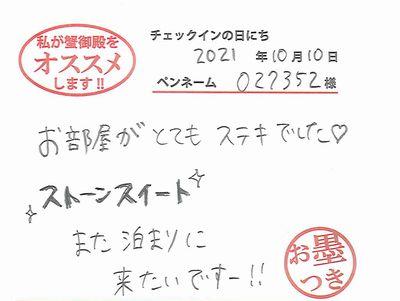 私が蟹御殿を
オススメ
します!!
チェックインの日にち
2021 年10月10日
ペンネーム 027352様
お部屋が とても ステキでした♡
ストーンスイート
また 泊まりに
来たいですー!!
お墨
つき